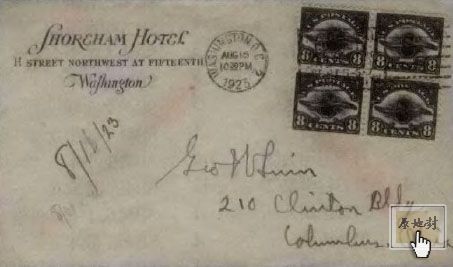 SHOREHAM HOTEL
H STREET NORTHWEST AT FIFTEENTH
Washington
WASHINGTON, D.C. 2
AUG 15
1923
8 CENTS 8
8 CENTS 8
8 CENTS 8
8 CENTS 8
8/18/23
Geo W
210 Clinton Bldg
Columbus
原地封